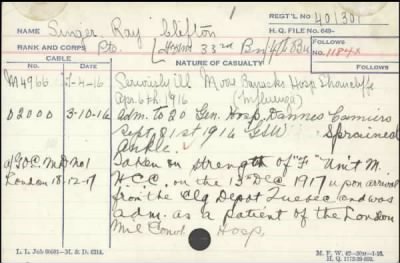 REGT'L NO 401301
NAME Singer Ray Clifton
H.Q. FILE NO. 649-
RANK AND CORPS Pte. 33rd Bn
FOLLOWS
No. 1184
CABLE NATURE OF CASUALTY
NO. DATE FOLLOWS
M4966 7-4-16 Seriously ill Moore Barracks Hosp Shorncliffe
April 6th 1916 (Influenza)
02000 3-10-16 Adm. to 20 Gen. Hosp. Dannes Camiers
Sept. 21st 1916 GSW Sprained
Ankle.
A/G.O.C. M.D. No 1 Taken on strength of "F" Unit M.
London 18-12-17 H.C.C. on the 13 Dec 1917 upon arrival
from the Clg Depot Quebec and was
adm. as a patient of the London
Mil Conval. Hosp.
L. L. Job 90601-M. & D. 6214.
M. F. W. 42
H. Q. 1772-39-893.